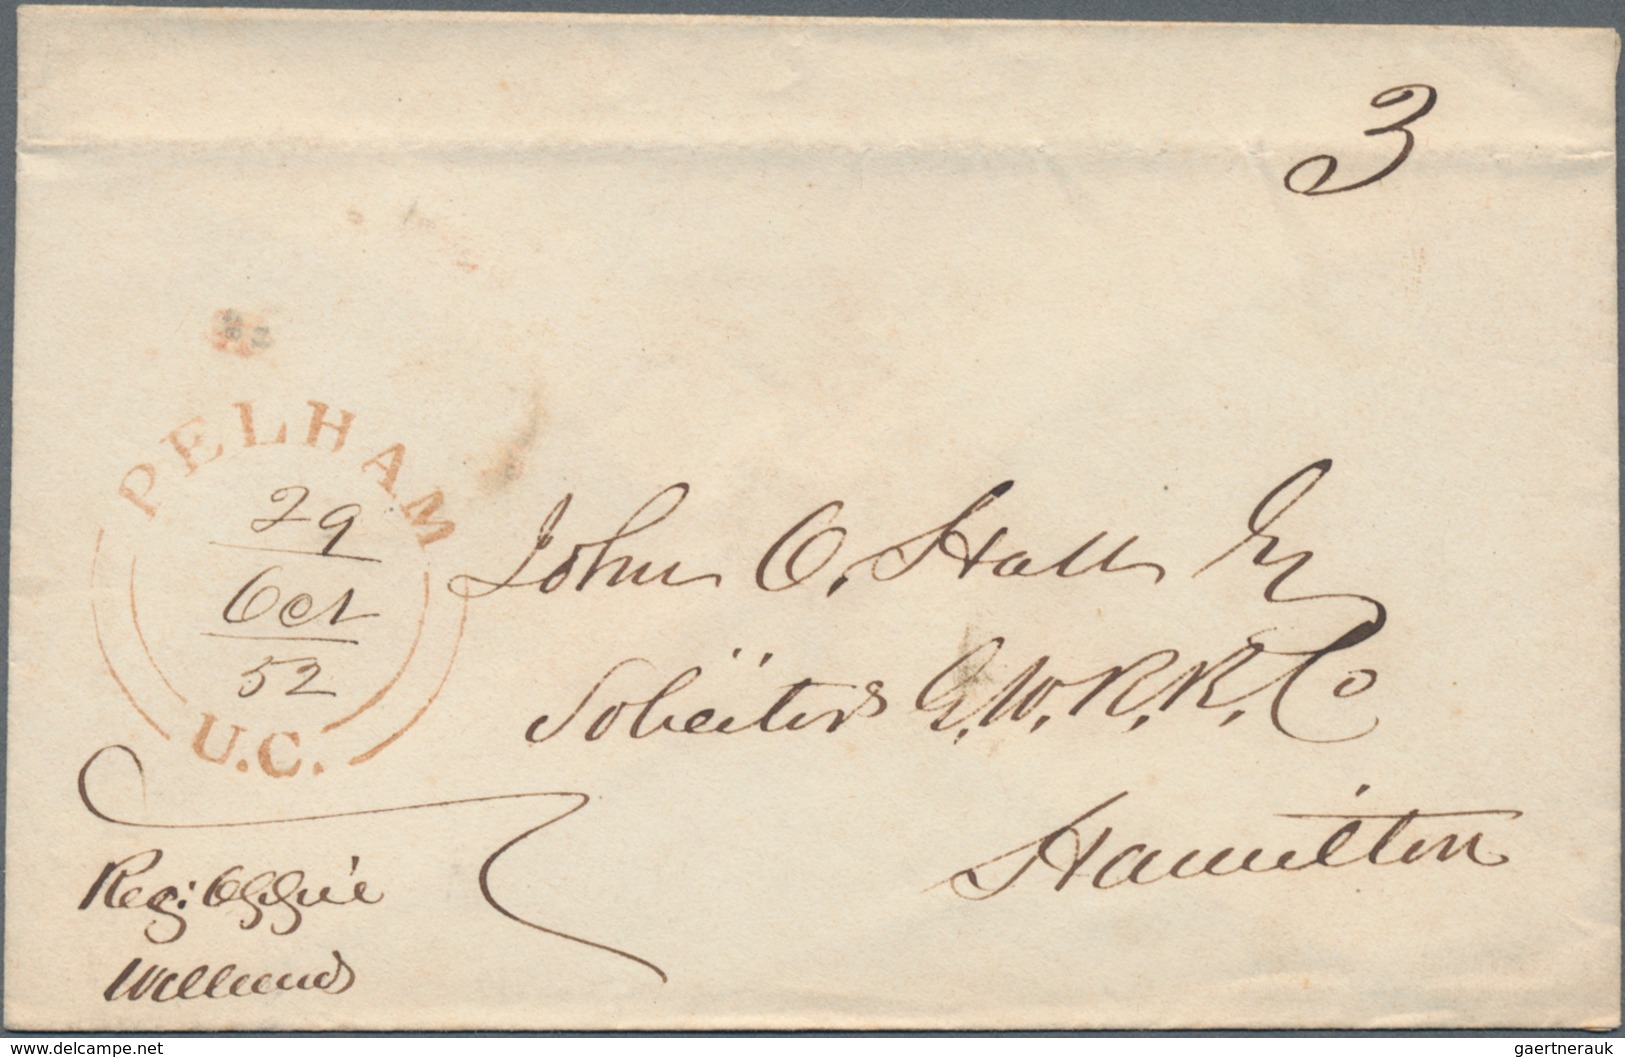 3
PELHAM
29
Oct
52
U.C.
John O. Hatt Esq
Soliciters G.W.R.R. Co
Hamilton
Reg: Office
Welland
www.delcampe.net
gaertnerauk